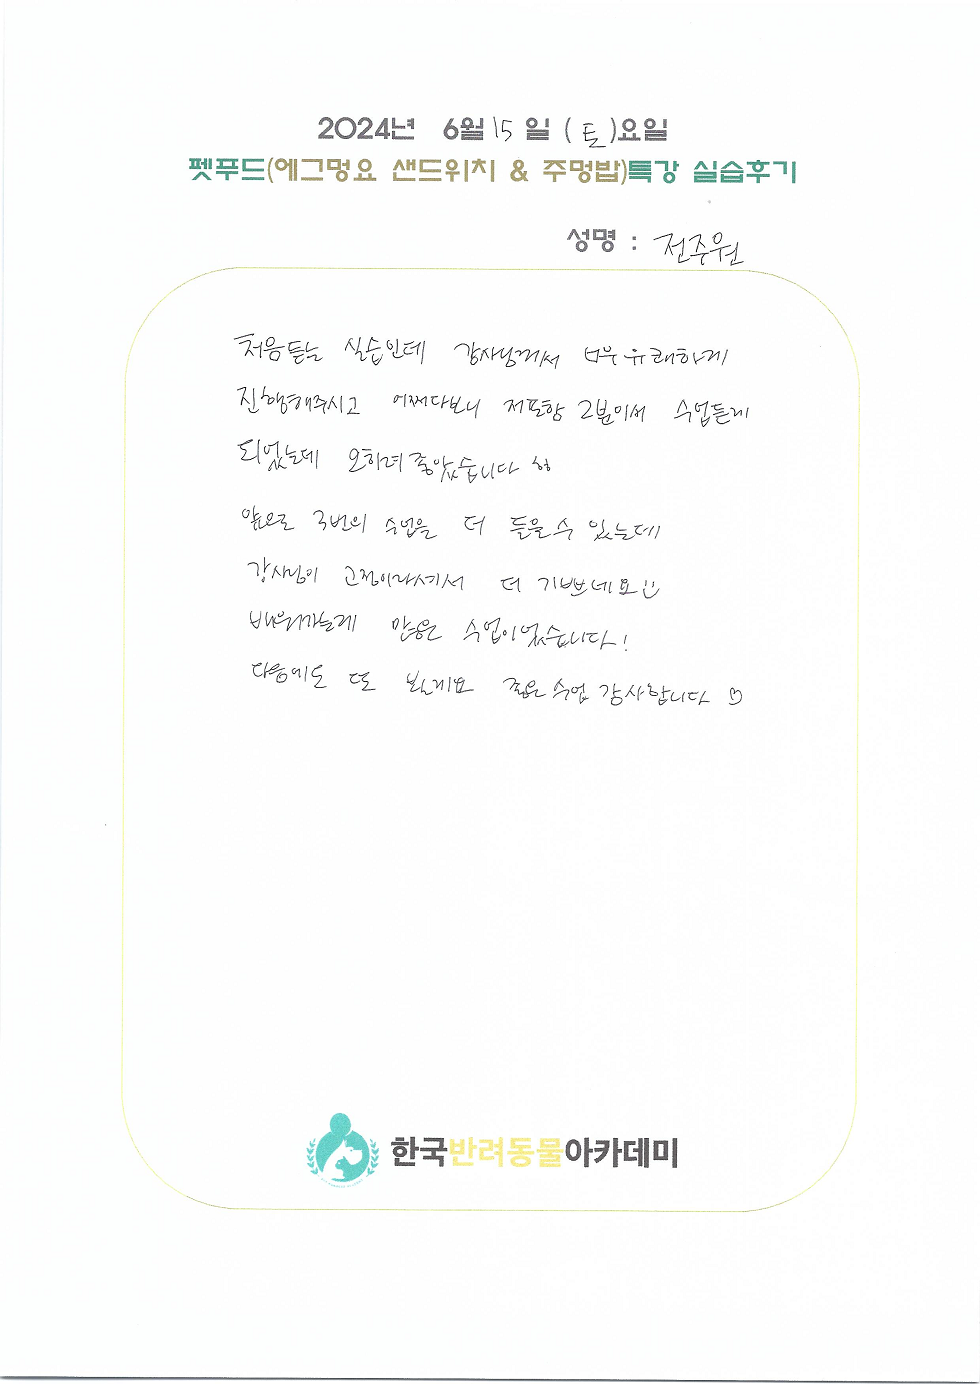 2024년 6월 15일 (토)요일
펫푸드(에그멍요 샌드위치 & 주멍밥)특강 실습후기
성명 : 전주원
처음듣는 실습인데 강사님께서 너무 유쾌하게
진행해주시고 어쩌다보니 저포함 2분이서 수업듣게
되었는데 오히려 좋았습니다 ㅎㅎ
앞으로 3번의 수업을 더 들을 수 있는데
강사님이 고정이라셔서 더 기쁘네요
배워가는게 많은 수업이었습니다!
다음에도 또 볼게요 좋은 수업 감사합니다 ♡
한국반려동물아카데미